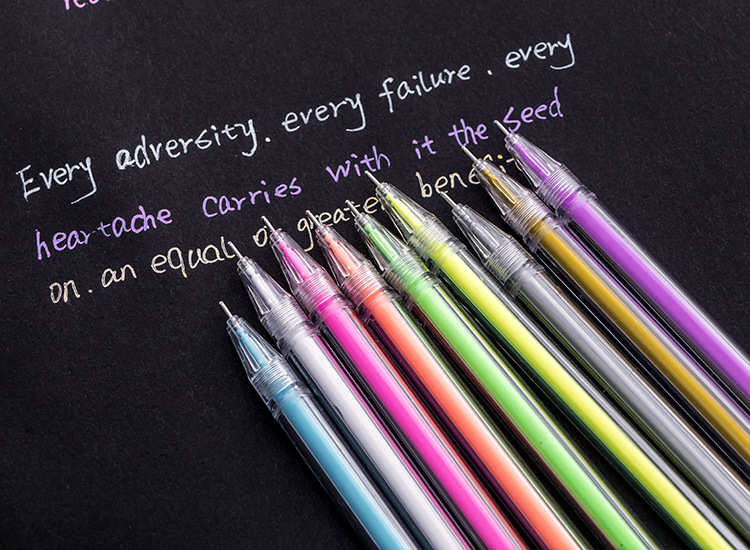 Every adversity. every failure. every
heartache carries with it the seed
on. an equal or greater benefit